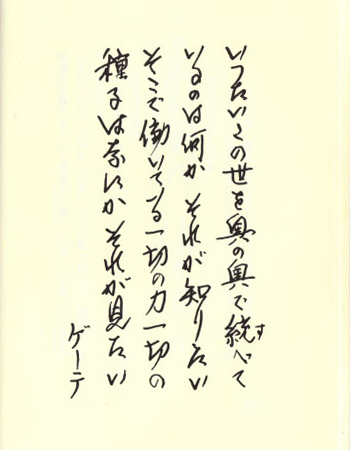 いったいこの世を奥の奥で統べて
いるのは何か それが知りたい
そこで働いてる一切の力一切の
種子は奈にか それが見たい
ゲーテ